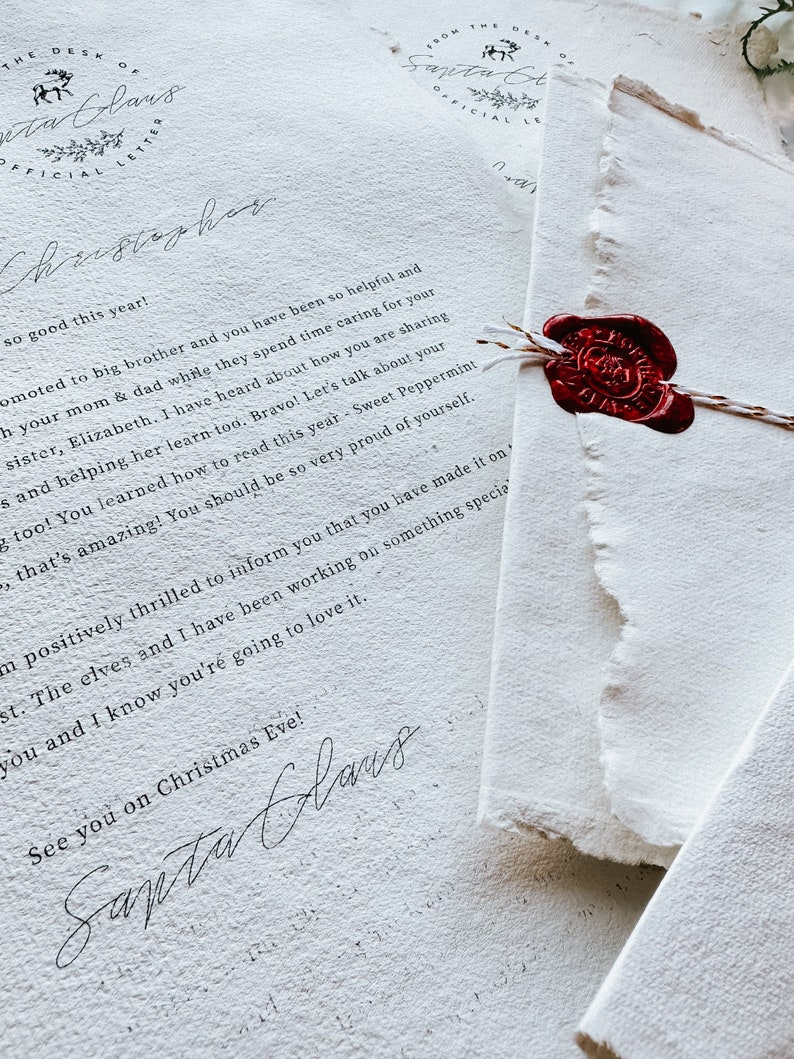 THE DESK OF
Santa Claus
OFFICIAL LETTER
FROM THE DESK OF
Santa Claus
OFFICIAL LETTER
Christopher
so good this year!
omoted to big brother and you have been so helpful and
h your mom & dad while they spend time caring for your
sister, Elizabeth. I have heard about how you are sharing
s and helping her learn too. Bravo! Let's talk about your
g too! You learned how to read this year - Sweet Peppermint
, that's amazing! You should be so very proud of yourself.
m positively thrilled to inform you that you have made it on t
st. The elves and I have been working on something special
you and I know you're going to love it.
See you on Christmas Eve!
Santa Claus